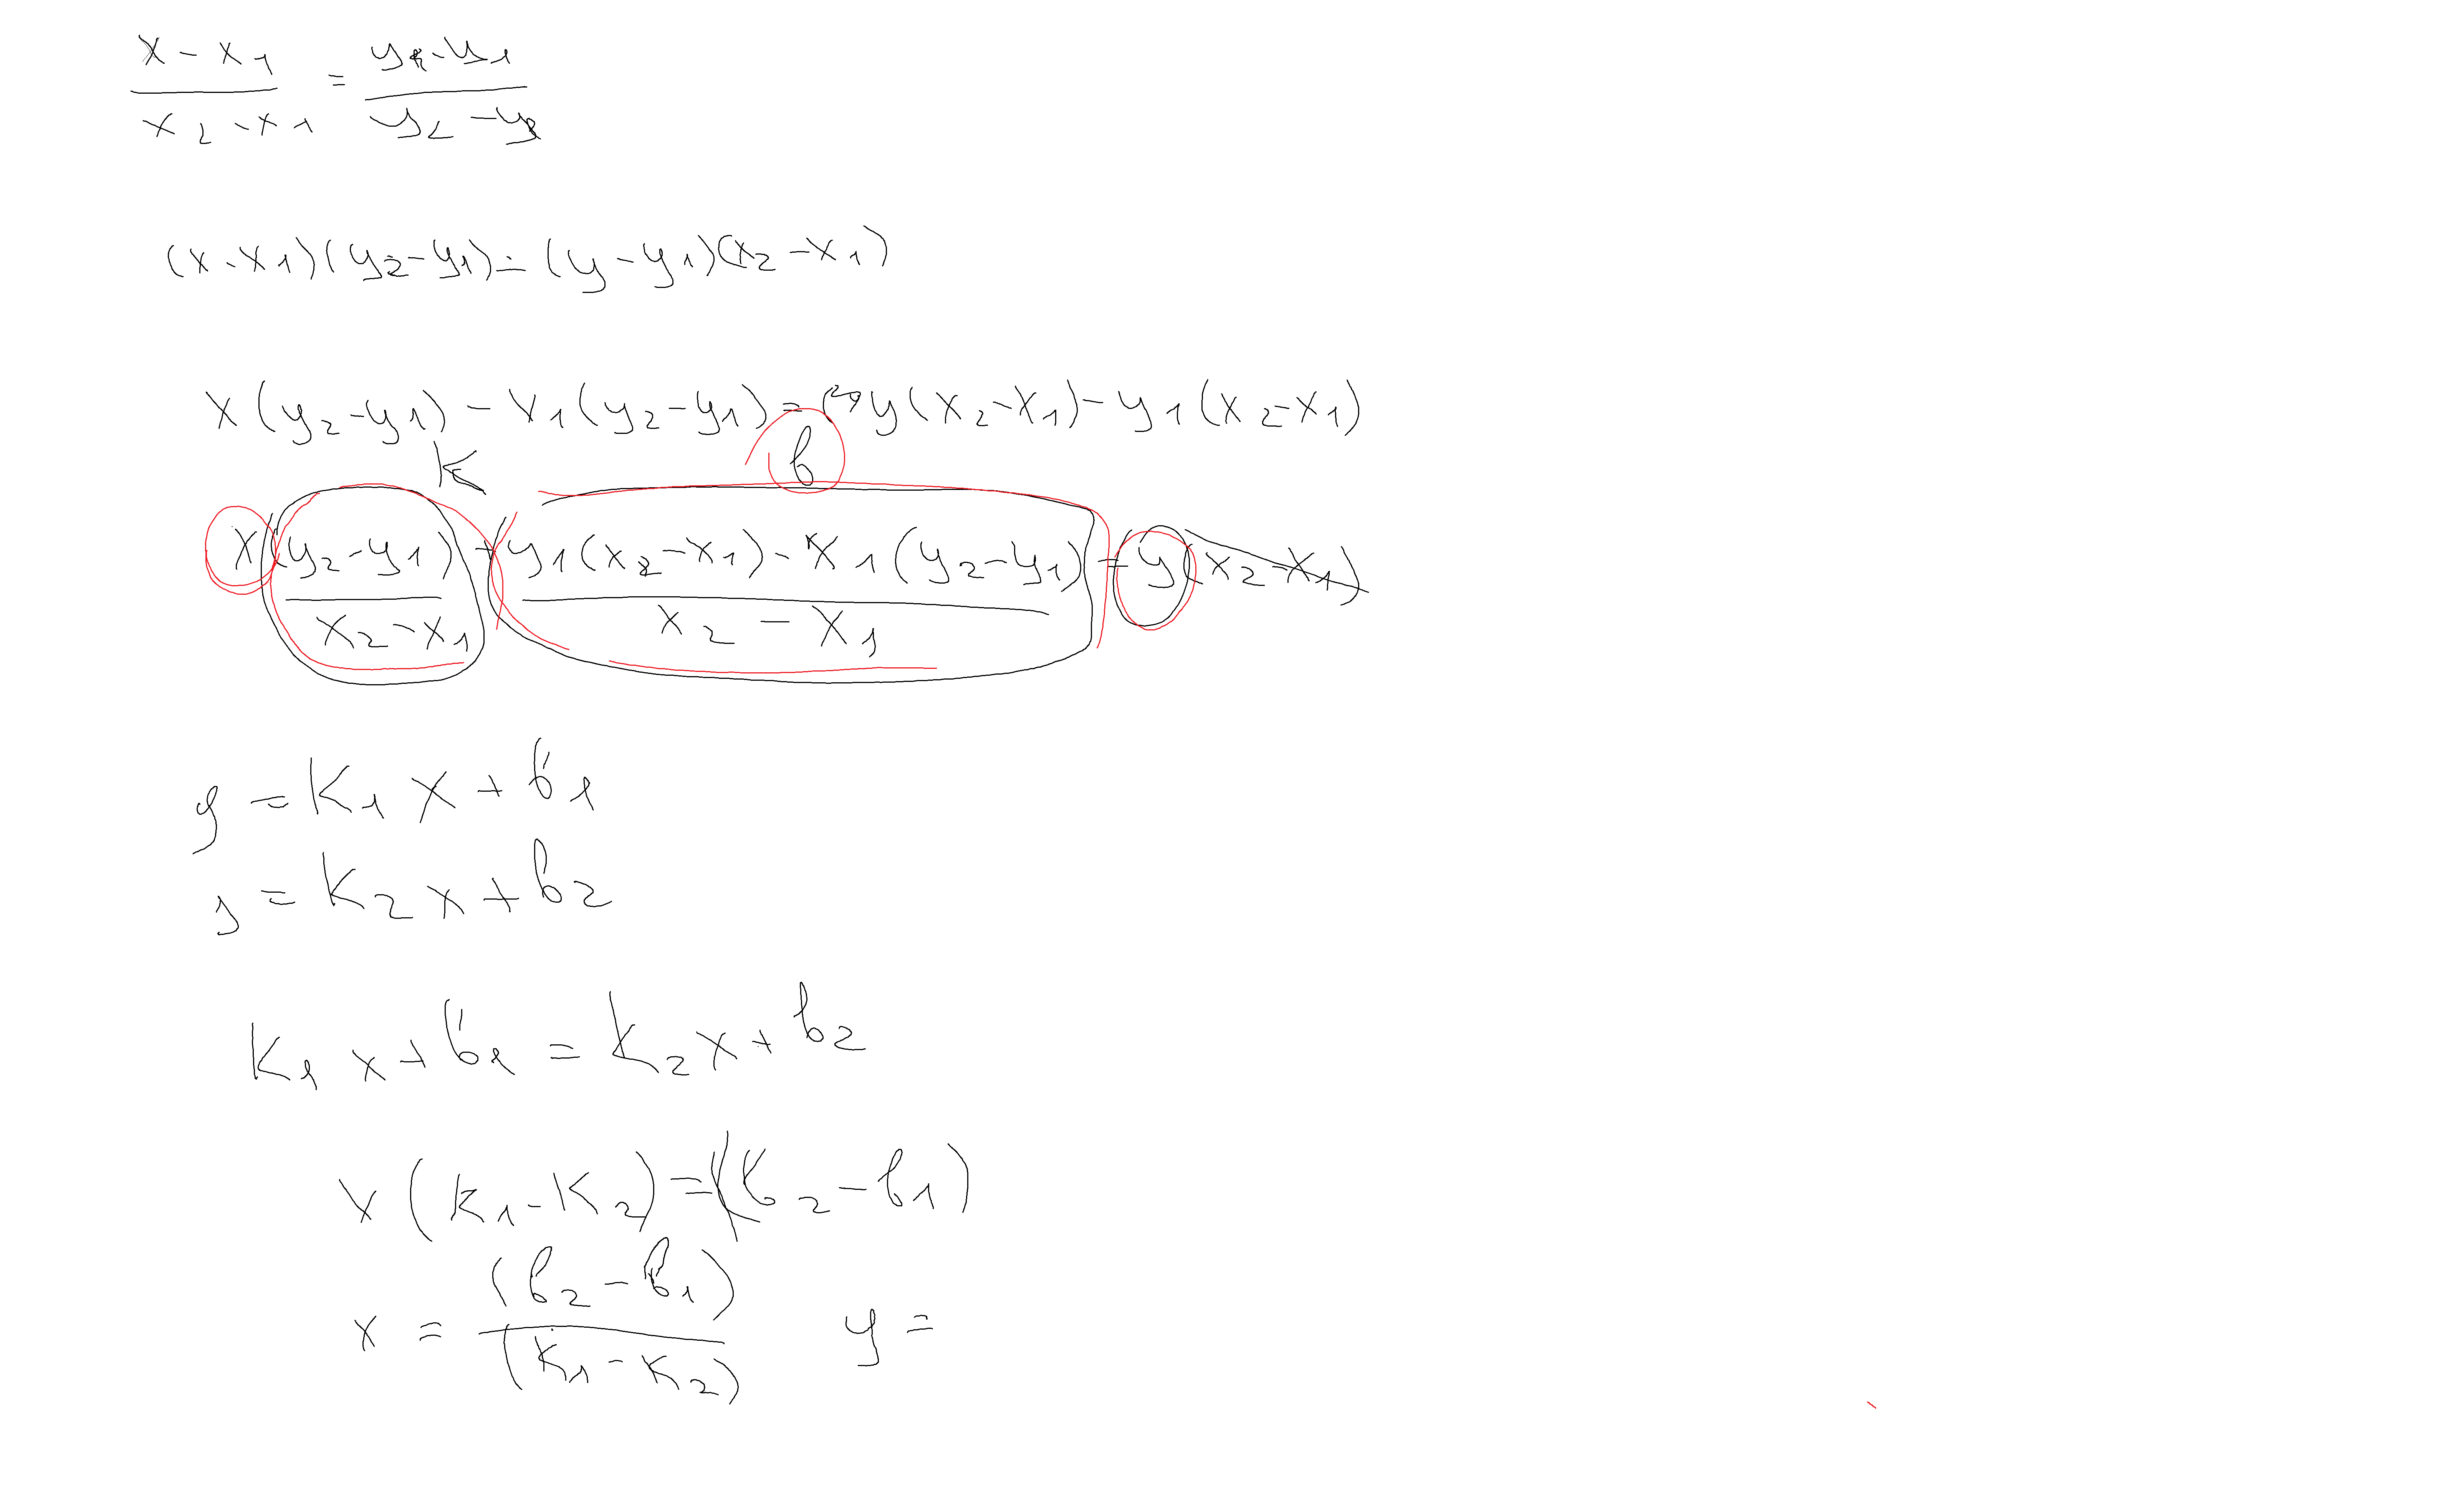 x - x1 / x2 - x1 = y - y1 / y2 - y1
(x - x1)(y2 - y1) = (y - y1)(x2 - x1)
x(y2 - y1) - x1(y2 - y1) = y(x2 - x1) - y1(x2 - x1)
K
b
x (y2 - y1) / x2 - x1 + y1(x2 - x1) - x1(y2 - y1) / x2 - x1 = y (x2 - x1)
y = K1 x + b1
y = K2 x + b2
K1 x + b1 = K2 x + b2
x (K1 - K2) = (b2 - b1)
x = (b2 - b1) / (K1 - K2) y =